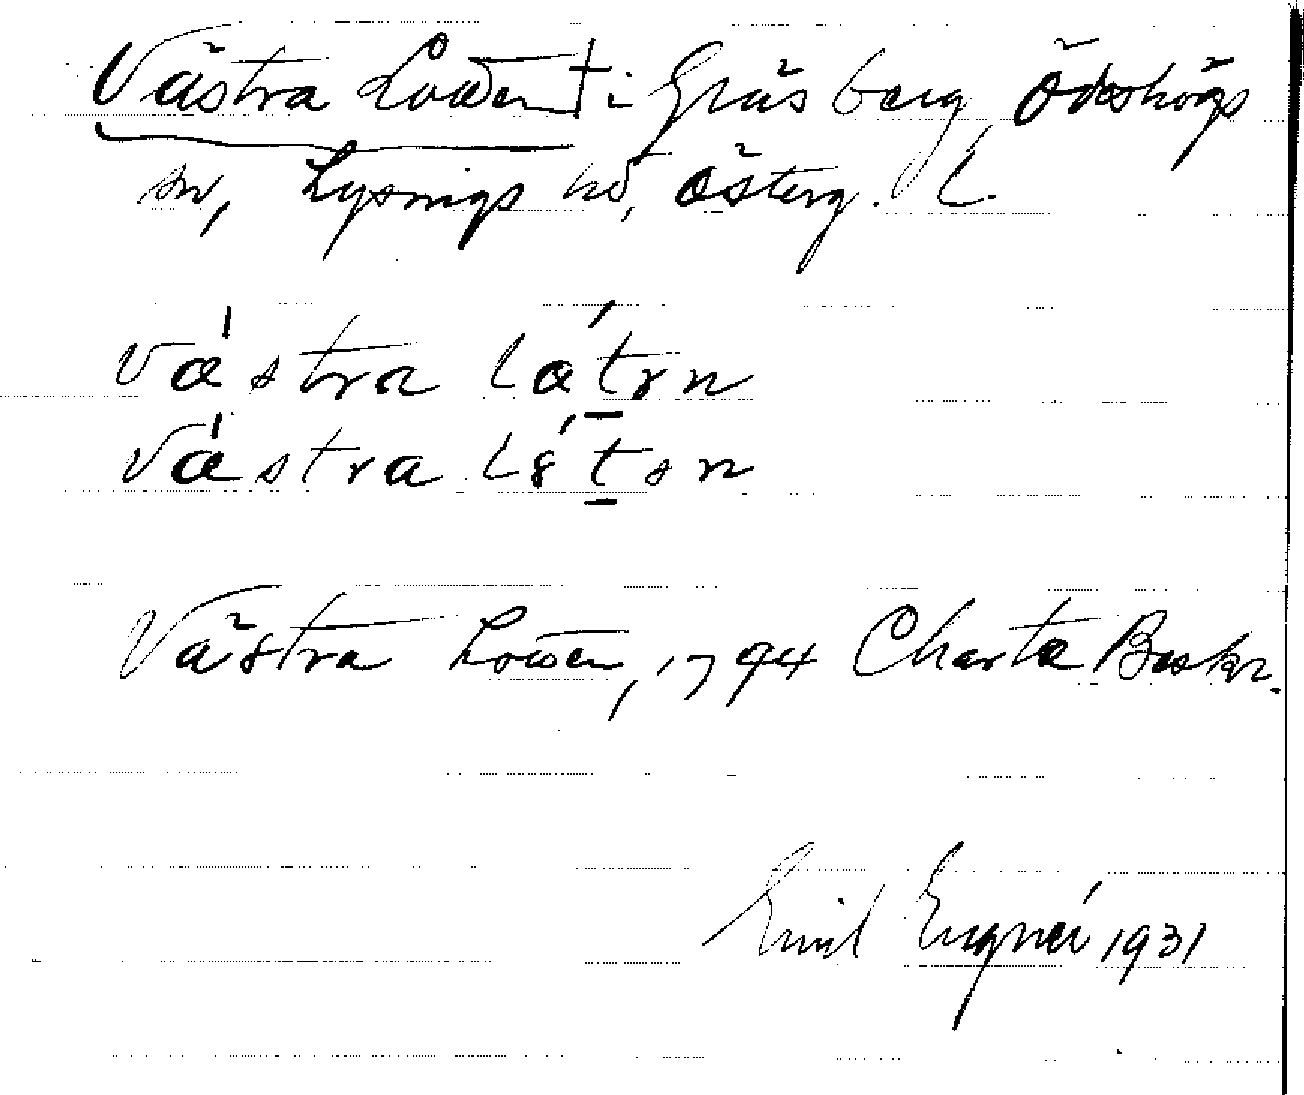 Västra Lotten † i Gräsberg, Ödeshögs
sn, Lysings hd, Österg. L.
västra látrn
västra lótsn
Västra Lotten, 1794 Charta Beskr.
Emil Engné 1931